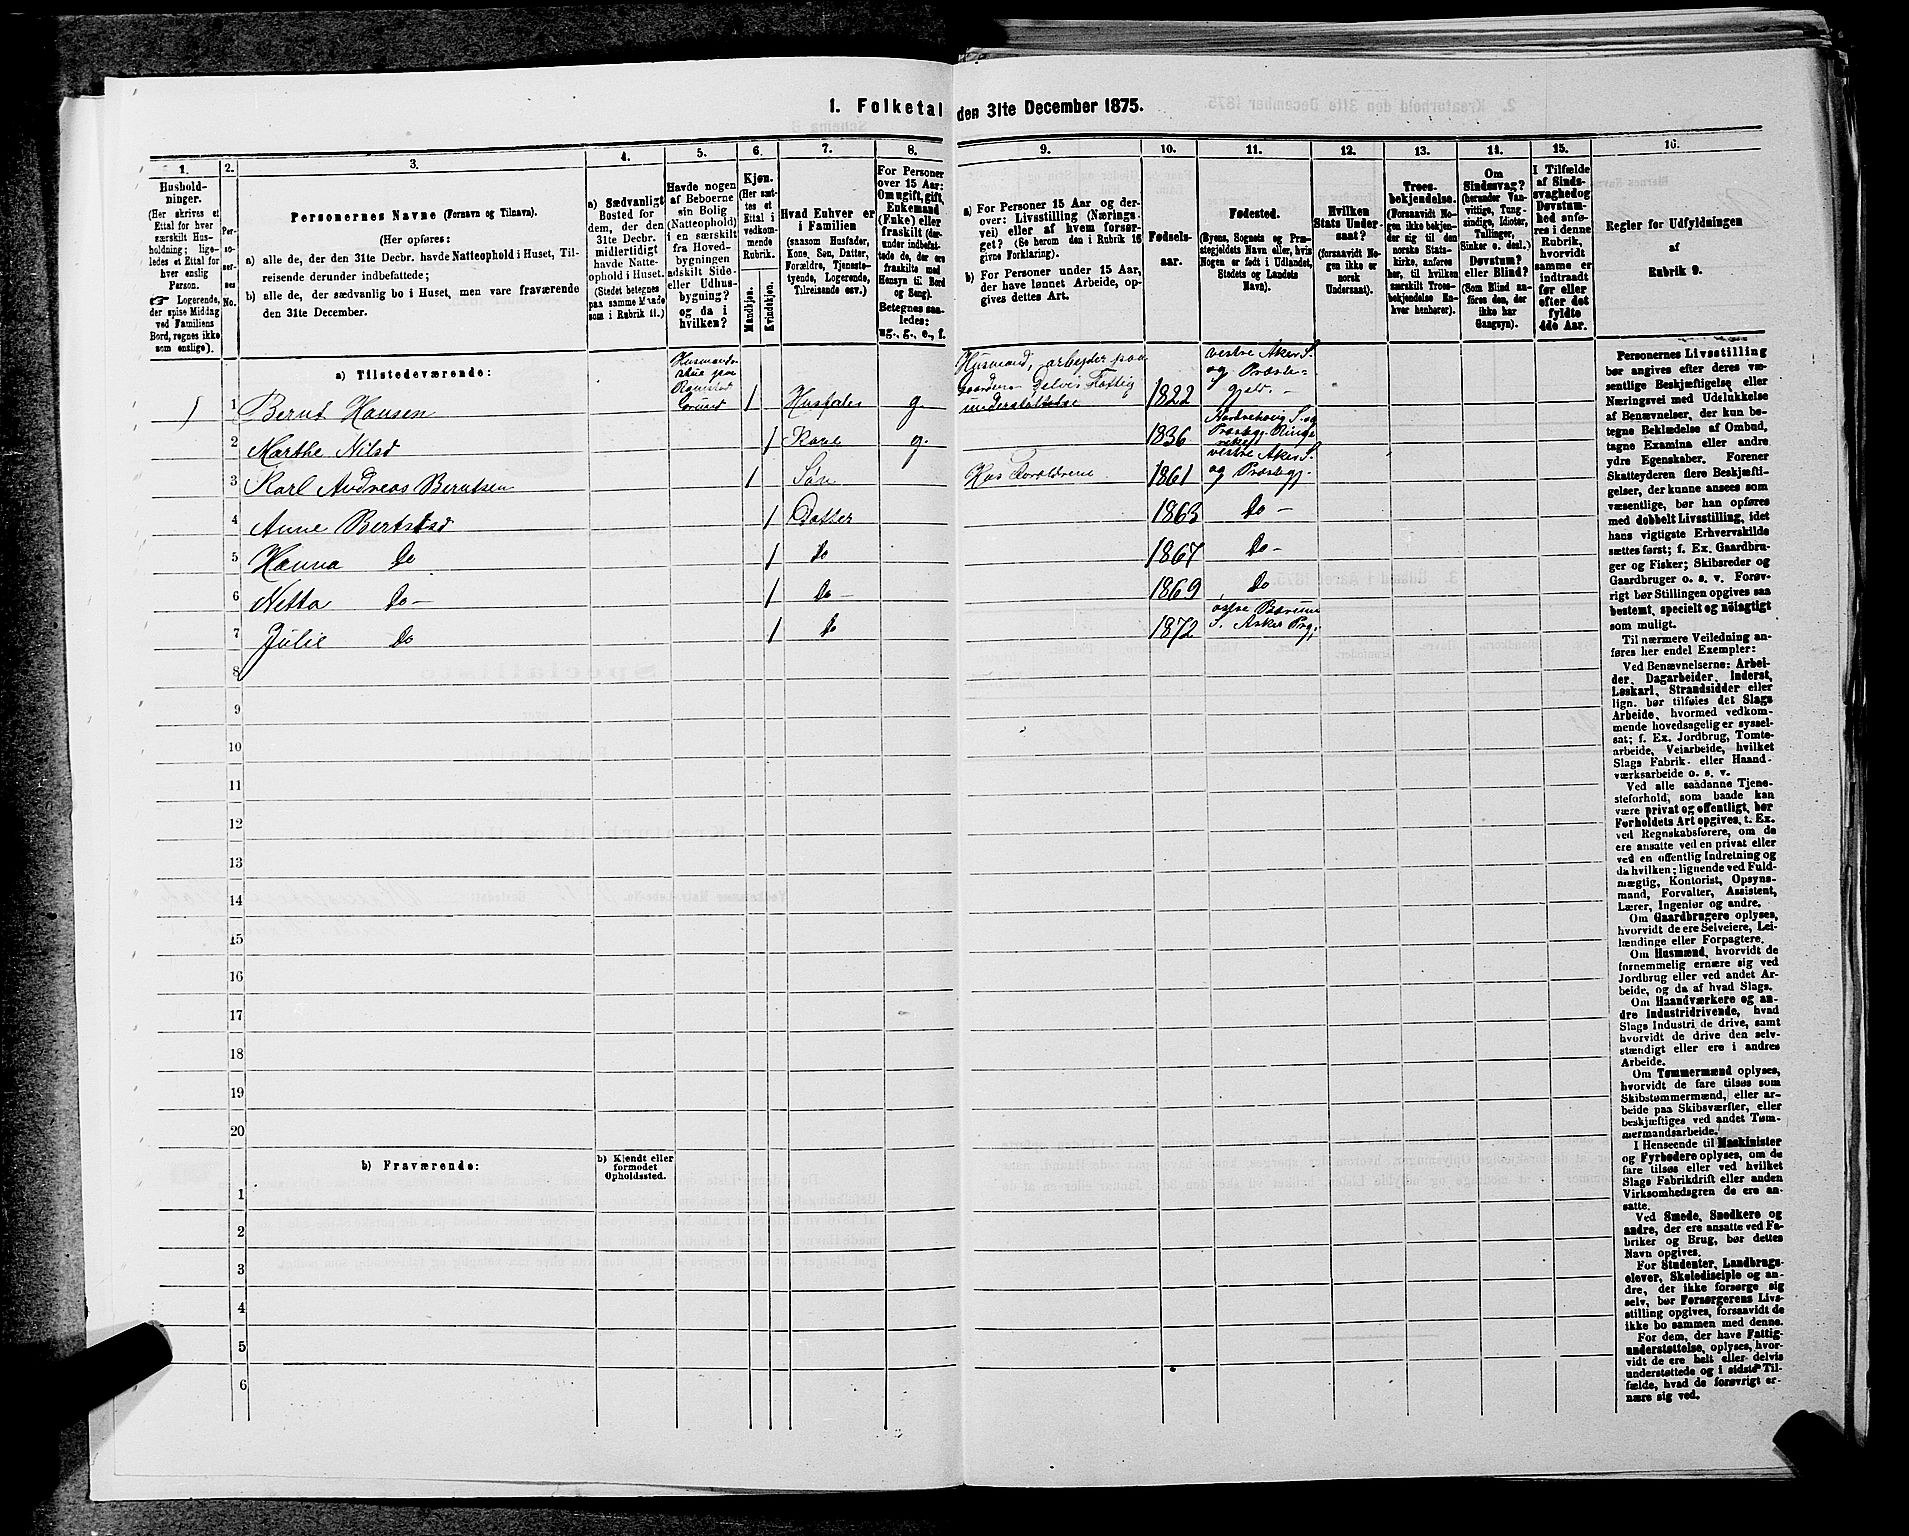 1. Folketal den 31te December 1875.
1.
2.
3.
4.
5.
6.
7.
8.
9.
10.
11.
12.
13.
14.
15.
16.
Hushold-
ninger.
(Her skrives et
Ettal for hver
særskilt Hus-
holdning; lige-
ledes et Ettal for
hver enslig
Person.
☞ Logerende,
der spise Middag
ved Familiens
Bord, regnes ikke
som enslige).
Per-
so-
ner-
nes
No.
Personernes Navne (Fornavn og Tilnavn).
(Her opføres:
a) alle de, der den 31te Decbr. havde Natteophold i Huset, Til-
reisende derunder indbefattede;
b) alle de, der sædvanlig bo i Huset, men vare fraværende
den 31te December.
a) Sædvanligt
Bosted for
dem, der den
31te Decbr.
midlertidigt
havde Natte-
ophold i Huset.
(Stedet betegnes
paa samme Maade
som i Rubrik 11.)
Havde nogen
af Beboerne
sin Bolig
(Natteophold)
i en særskilt
fra Hoved-
bygningen
adskilt Side-
eller Udhus-
bygning?
og da i
hvilken?
Kjøn.
(Her sæt-
tes et
Ettal i
vedkom-
mende
Rubrik.
Mandkjøn.
Kvindekjøn.
Hvad Enhver er
i Familien
(saasom Husfader,
Kone, Søn, Datter,
Forældre, Tjeneste-
tyende, Logerende,
Tilreisende osv.)
For Personer
over 15 Aar:
Om ugift, gift,
Enkemand
(Enke) eller
fraskilt (der-
under indbefat-
tede de, der ere
fraskilte med
Hensyn til Bord
og Seng).
Betegnes saa-
ledes:
ug., g., e., f.
a) For Personer 15 Aar og der-
over: Livsstilling (Nærings-
vei) eller af hvem forsør-
get? (Se herom den i Rubrik 16
givne Forklaring).
b) For Personer under 15 Aar,
der have lønnet Arbeide, op-
gives dettes Art.
Fødsels-
aar.
Fødested.
(Byens, Sognets og Præ-
stegjeldets Navn eller, hvis
Nogen er født i Udlandet,
Stedets og Landets
Navn).
Hvilken
Stats Under-
saat?
(forsaavidt No-
gen ikke er
norsk
Undersaat).
Troes-
bekjendelse.
(Forsaavidt No-
gen ikke bekjen-
der sig til den
norske Stats-
kirke, anføres
her, til hvilken
særskilt Troes-
bekjendelse En-
hver henhører).
Om
Sindssvag?
(herunder Van-
vittige, Tung-
sindige, Idioter,
Tullinger,
Sinker o. desl.)
Døvstum?
eller Blind?
(Som Blind an-
føres den, der
ikke har
Gangsyn).
I Tilfælde
af Sinds-
svaghed og
Døvstum-
hed anfø-
res i denne
Rubrik,
hvorvidt
samme er
indtraadt
før eller
efter det
fyldte
4de Aar.
Regler for Udfyldningen
af
Rubrik 9.
a) Tilstedeværende:
1 1 Bernt Hansen
Husmands-
stue paa
Grund
1 Husfader g.
Husmand, arbejder paa
Gaarden. Delvis Fattig
understøttelse
1822
vestre Aker S.
og Præste-
gjeld. -
2 Marthe Nilsd 1 Kone g. 1836
Nordrehoug S. og
Præstg. Ringe
rike
3 Karl Andreas Berntsen 1 Søn Hos Forældrene 1861
vestre Aker S.
og Præstegj.
4 Anne Berntsd 1 Datter 1863 Do -
5 Hanna Do 1 Do 1867 Do -
6 Netta Do - 1 Do - 1869 Do
7 Julie Do 1 Do 1872
østre Bærum
S. Asker Prg.
8
9
10
11
12
13
14
15
16
17
18
19
20
b) Fraværende:
b) Kjendt eller
formodet
Opholdssted.
1
2
3
4
5
6
Personernes Livsstilling
bør angives efter deres væ-
sentlige Beskjæftigelse eller
Næringsvei med Udelukkelse
af Benævnelser, der kun be-
tegne Beklædelse af Ombud,
tagne Examina eller andre
ydre Egenskaber. Forener
Skatteyderen flere Beskjæfti-
gelser, der kunne ansees som
væsentlige, bør han opføres
med dobbelt Livsstilling, idet
hans vigtigste Erhvervskilde
sættes først; f. Ex. Gaardbru-
ger og Fisker; Skibsreder og
Gaardbruger o. s. v. Forøv-
rigt bør Stillingen opgives saa
bestemt, specielt og nøiagtigt
som muligt.
Til nærmere Veiledning an-
føres her endel Exempler:
Ved Benævnelserne: Arbei-
der, Dagarbeider, Inderst,
Løskarl, Strandsidder eller
lign. bør tilføies det Slags
Arbeide, hvormed vedkom-
mende hovedsagelig er syssel-
sat; f. Ex. Jordbrug, Tomte-
arbeide, Veiarbeide, hvilket
Slags Fabrik- eller Haand-
værksarbeide o. s. v.
Ved alle saadanne Tjene-
steforhold, som baade kan
være privat og offentligt, bør
Forholdets Art opgives, t. Ex.
ved Regnskabsførere, om de
ere ansatte ved en privat eller
ved en offentlig Indretning og
da hvilken; lignende ved Fuld-
mægtig, Kontorist, Opsyns-
mand, Forvalter, Assistent,
Lærer, Ingeniør og andre.
Om Gaardbrugere oplyses,
hvorvidt de ere Selveiere, Lei-
lændinge eller Forpagtere.
Om Husmænd, hvorvidt de
fornemmelig ernære sig ved
Jordbrug eller ved andet Ar-
beide, og da af hvad Slags.
Om Haandværkere og an-
dre Industridrivende, hvad
Slags Industri de drive, samt
hvorvidt de drive den selv-
stændigt eller ere i andres
Arbeide.
Om Tømmermænd oplyses,
hvorvidt de fare tilsøs som
Skibstømmermænd, eller ar-
beide paa Skibsværfter, eller
beskjæftiges ved andet Tøm-
mermandsarbeide.
I Henseende til Maskinister
og Fyrbødere oplyses, om de
fare tilsøs eller ved hvilket
Slags Fabrikdrift eller anden
Virksomhedsgren de ere an-
satte.
Ved Smede, Snedkere og
andre, der ere ansatte ved Fa-
briker og Brug, bør dettes
Navn opgives.
For Studenter, Landbrugs-
elever, Skoledisciple og an-
dre, der ikke forsørge sig
selv, bør Forsørgerens Livs-
stilling opgives, forsaavidt de
ikke bo sammen med denne.
For dem, der have Fattig-
understøttelse, oplyses, hvor-
vidt de ere helt eller delvis
understøttede og i sidste Til-
fælde, hvad de forøvrigt er-
nære sig ved.